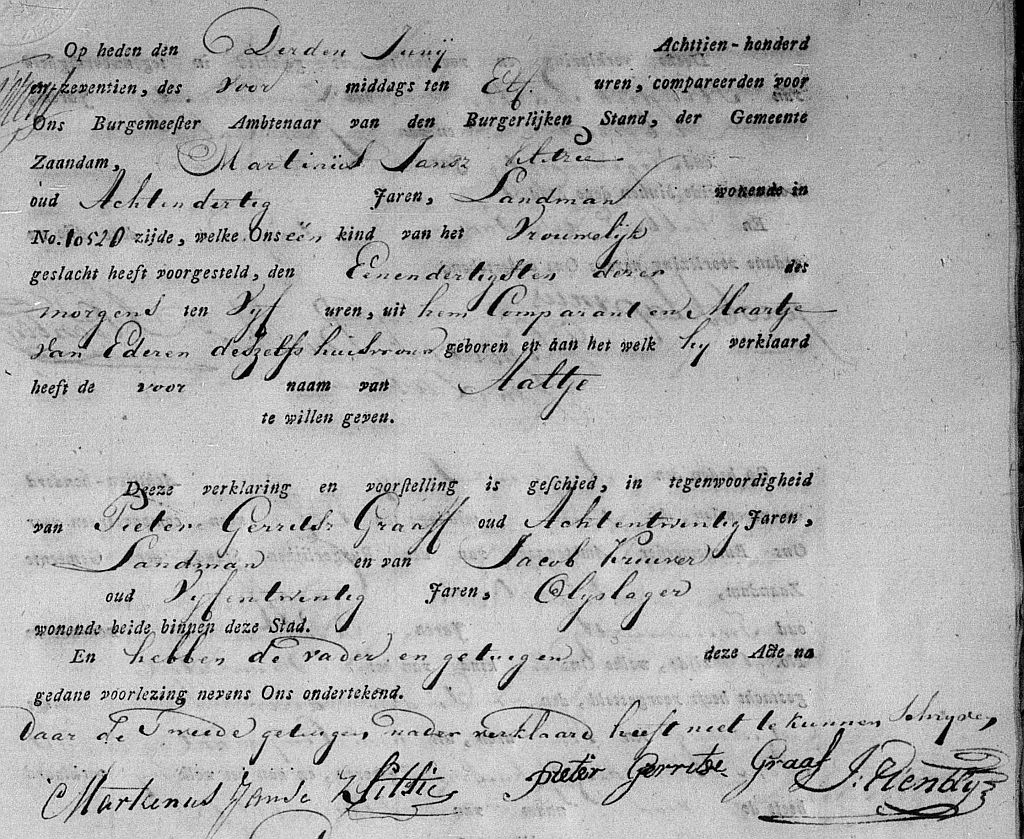 Op heden den Derden Junij Achttien-honderd
en-zeventien, des voor middags ten Elf uren, compareerden voor
Ons Burgemeester Ambtenaar van den Burgerlijken Stand, der Gemeente
Zaandam, Martinus Jansz
oud Achtendertig Jaren, Landman wonende in
No. 10520 zijde, welke Ons een kind van het Vrouwelijk
geslacht heeft voorgesteld, den Eenendertigsten dezer des
morgens ten Vyf uren, uit hem Comparant en Maartje
van Ederen deszelfs huisvrouw geboren en aan het welk hy verklaard
heeft de voor naam van Aaltje
te willen geven.
Deeze verklaring en voorstelling is geschied, in tegenwoordigheid
van Pieter Gerritsz Graaff oud Achtentwintig Jaren,
Landman en van Jacob
oud Vyfentwintig Jaren, Olyslager
wonende beide binnen deze Stad.
En hebben de vader en getuigen deze Acte na
gedane voorlezing nevens Ons ondertekend.
Daar de Tweede getuigen nader verklaard heeft niet te kunnen schryven
Martienus Janse Pieter Gerritse Graaf